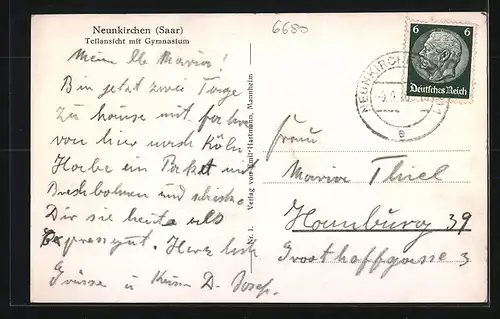 Neunkirchen (Saar)
Teilansicht mit Gymnasium
6680
Meine lb. Maria!
Bin jetzt zwei Tage
zu hause mit
von hier nach Köln
Habe ein Paket mit
Brechbohnen und schicke
Dir sie heute als
Expressgut. Herzlich
Grüsse u Kuss D. Josef.
Nr. 1. Verlag von Emil Hartmann, Mannheim
NEUNKIRCHEN
6 6
Deutsches Reich
Frau
Maria Thiel
Hamburg 39
Grosthoffgasse 3